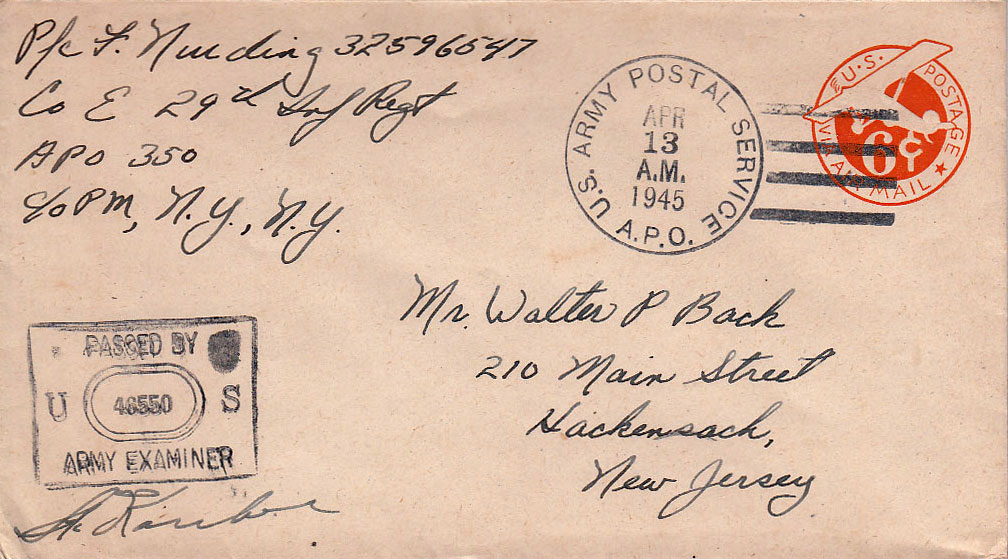 Pfc F. Nurding 32596547
Co E 29th Inf Regt
APO 350
c/o PM, N.Y., N.Y.
U.S. ARMY POSTAL SERVICE
APR
13
A.M.
1945
A.P.O.
U.S. POSTAGE
6¢
VIA AIR MAIL
Mr. Walter P Back
210 Main Street
Hackensack,
New Jersey
PASSED BY
U 46550 S
ARMY EXAMINER